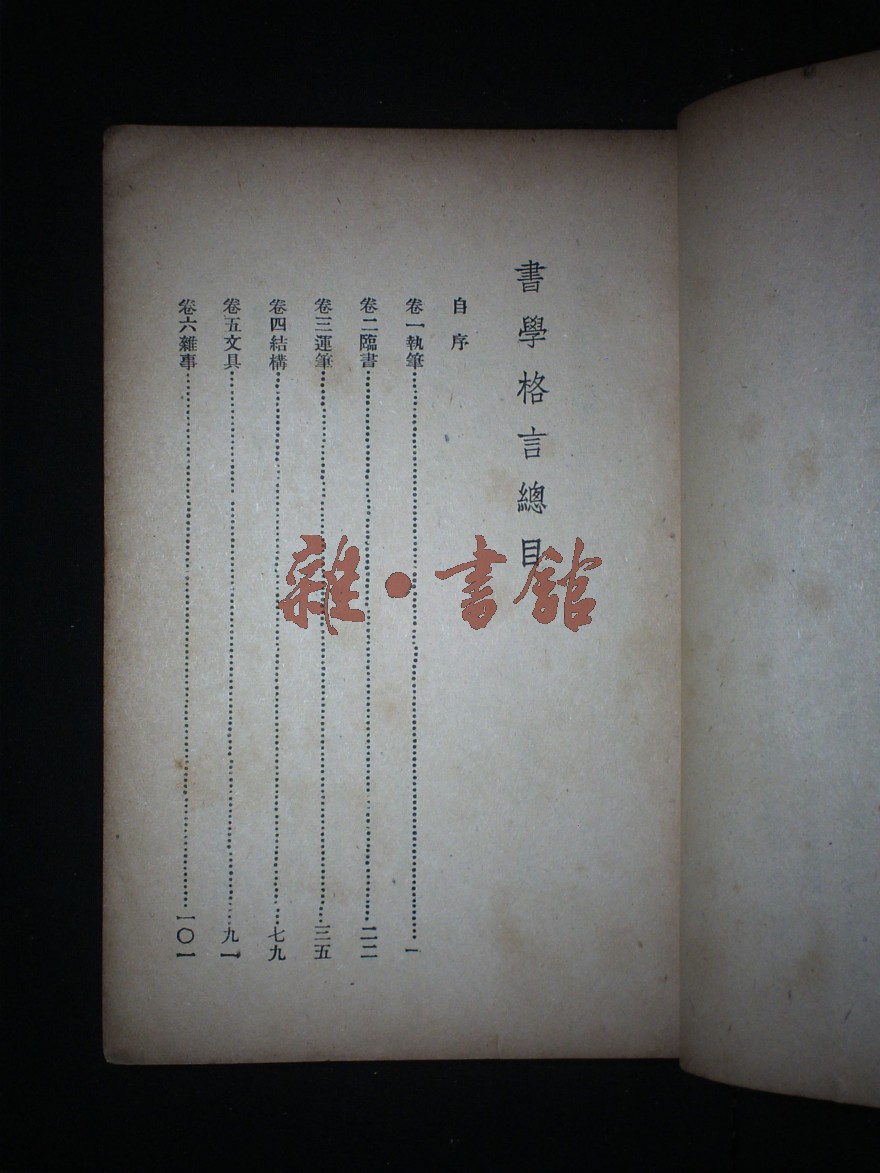 書學格言總目
自序
卷一執筆………一
卷二臨書………二二
卷三運筆………三五
卷四結構………七九
卷五文具………九一
卷六雜事………一〇一
雜・書館